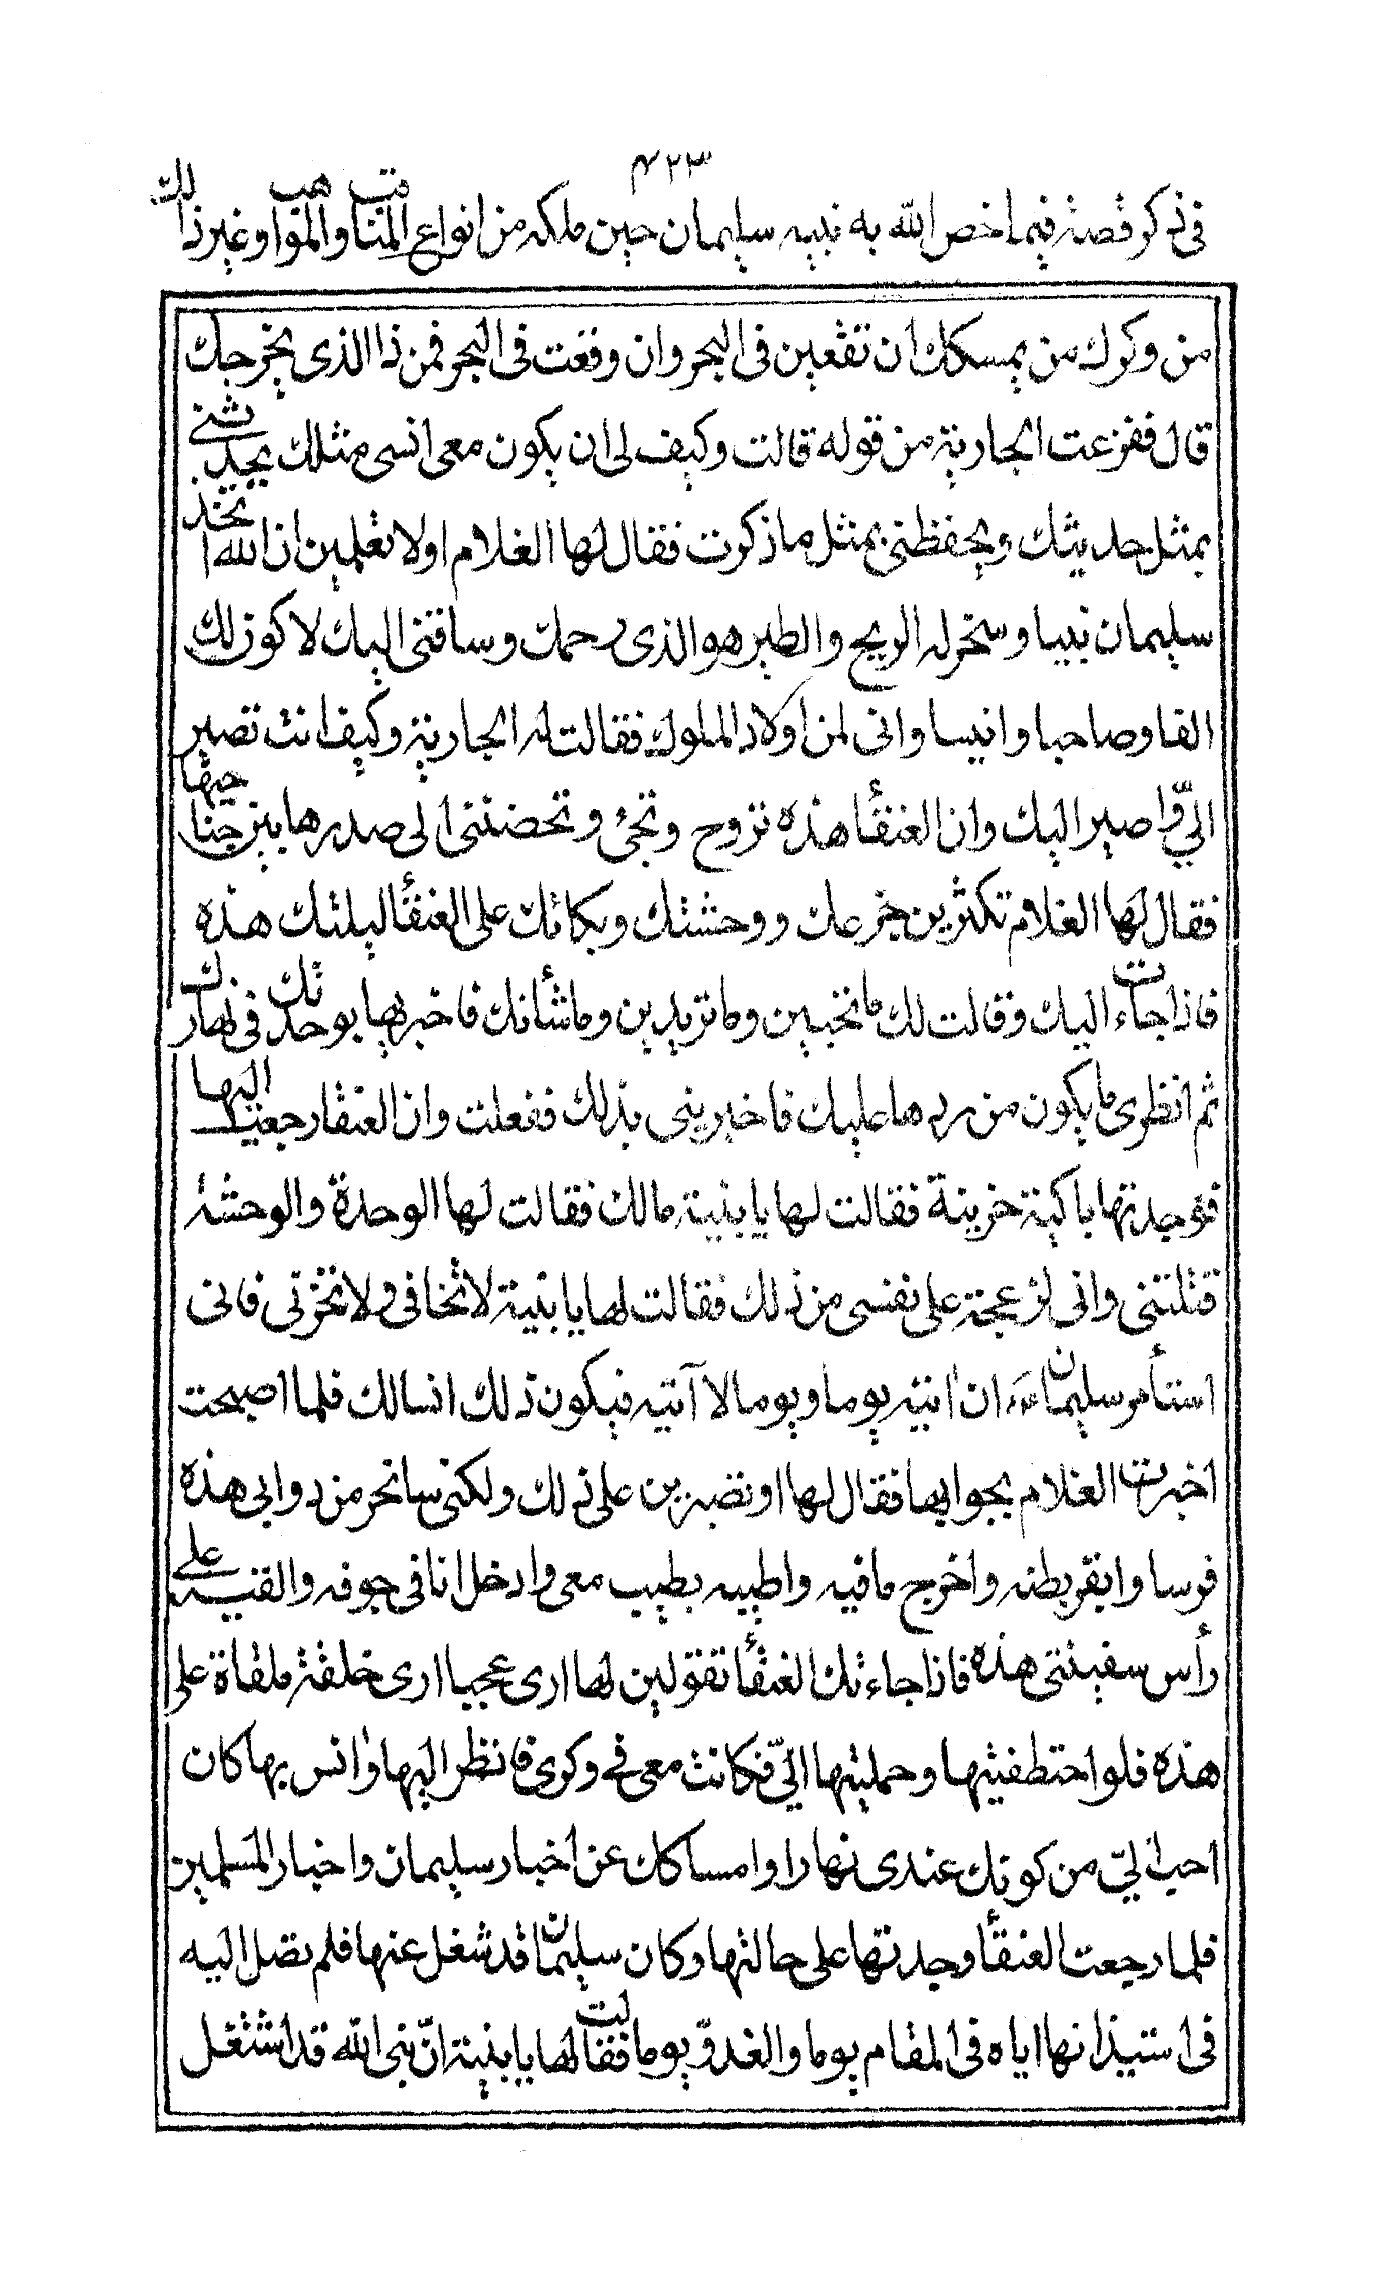 ٤٢٣
في ذكر قصة فيما خص الله به نبيه سليمان حين ملكه من انواع المناقب والمواهب وغير ذلك
من وكرك من يمسكك ان تقعين في البحر وان وقعت في البحر فمن ذا الذي يخرجك
قال ففزعت الجارية من قوله قالت وكيف لي ان يكون معي انسي مثلك يحدثني
بمثل حديثك ويحفظني بمثل ما ذكرت فقال لها الغلام اولا تعلمين ان الله اتخذ
سليمان نبيا وسخر له الريح والطير هو الذي رحمك وساقني اليك لاكون لك
الفا وصاحبا وانيسا واني لمن اولاد الملوك فقالت له الجارية وكيف انت تصير
اليّ واصير اليك وان العنقأ هذه تروح وتجئ وتحضنني الى صدرها بين جناحيها
فقال لها الغلام تكثرين جزعك ووحشتك وبكائك على العنقأ ليلتك هذه
فاذا جاءت اليك وقالت لك ما تخبين وما تريدين وما شأنك فاخبريها بوحدتك في نهارك
ثم انظري ما يكون من ردها عليك فاخبريني بذلك ففعلت وان العنقا رجعت اليها
فوجدتها باكية حزينة فقالت لها يا بنية مالك فقالت لها الوحدة والوحشة
قتلتني واني لزعجة على نفسي من ذلك فقالت لها يا بنية لا تخافي ولا تحزني فاني
استأمر سليمان ان اتيه يوما ويوما لا آتيه فيكون ذلك انسا لك فلما اصبحت
اخبرت الغلام بجوابها فقال لها اوتصبرين على ذلك ولكني سانحر من دوابي هذه
فرسا وابقر بطنه واخرج ما فيه واطيبه بطيب معي وادخل انا في جوفه والقيه على
رأس سفينتي هذه فاذا جاءتك العنقأ تقولين لها ارى عجبا ارى خلقة ملقاة على
هذه فلو اختطفيتها وحمليتها اليّ فكانت معي في وكري فانظر اليها وانس بها كان
احب اليّ من كونك عندي نهارا وامساكك عن اخبار سليمان واخبار المسلمين
فلما رجعت العنقأ وجدتها على حالتها وكان سليمان قد شغل عنها فلم تصل اليه
في استيذانها اياه في المقام يوما والغدوّ يوما فقالت لها يا بنية انّ نبي الله قد اشتغل